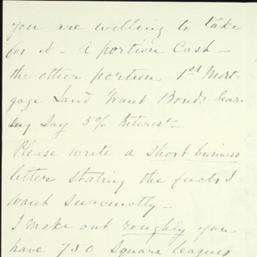 you are willing to take
for it - A portion Cash -
the other portion 1st Mort-
gage Land Grant Bonds bear-
ing say 5% Interest -
Please write a short business
letter stating the facts I
want succinctly -
I make out roughly you
have 750 Square leagues